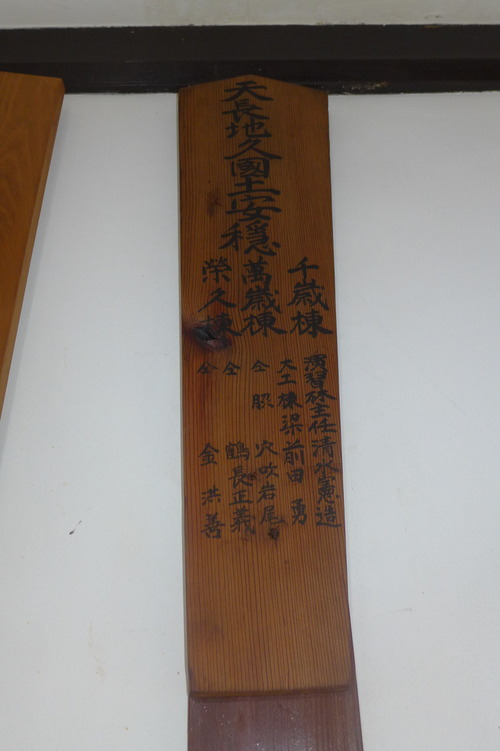 天長地久國土安穩
千歳棟
萬歳棟
榮久棟
演習林主任清水憲造
大工棟梁前田勇
仝脇穴吹岩尾
仝鶴長正義
仝金洪善